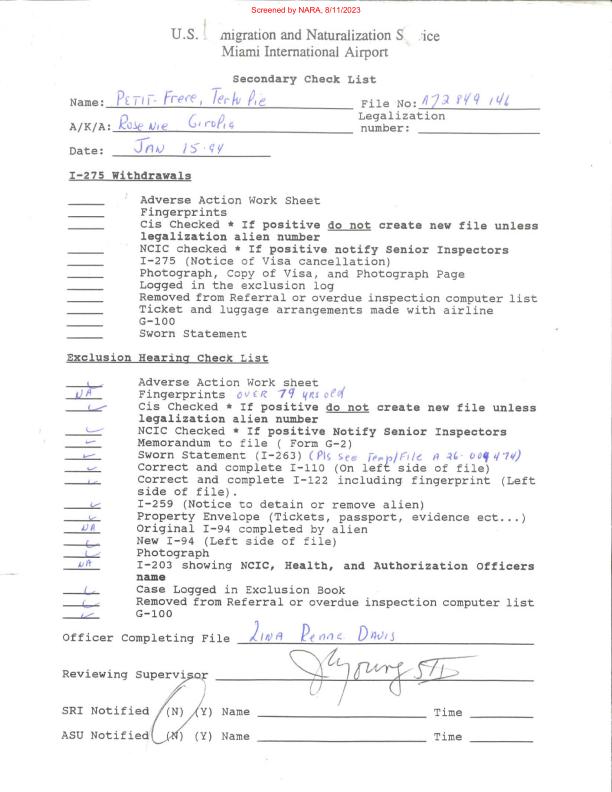 Screened by NARA, 8/11/2023
U.S. migration and Naturalization S ice
Miami International Airport
Secondary Check List
Name: PETIT-Frere, File No: A72 849 146
A/K/A: Rose Nie Legalization number:
Date: JAN 15-94
I-275 Withdrawals
Adverse Action Work Sheet
Fingerprints
Cis Checked * If positive do not create new file unless
legalization alien number
NCIC checked * If positive notify Senior Inspectors
I-275 (Notice of Visa cancellation)
Photograph, Copy of Visa, and Photograph Page
Logged in the exclusion log
Removed from Referral or overdue inspection computer list
Ticket and luggage arrangements made with airline
G-100
Sworn Statement
Exclusion Hearing Check List
✓ Adverse Action Work sheet
NA Fingerprints OVER 79 YRS old
✓ Cis Checked * If positive do not create new file unless
legalization alien number
✓ NCIC Checked * If positive Notify Senior Inspectors
✓ Memorandum to file ( Form G-2)
✓ Sworn Statement (I-263) (Pls see Temp/File A 26-009 474)
✓ Correct and complete I-110 (On left side of file)
✓ Correct and complete I-122 including fingerprint (Left
side of file).
✓ I-259 (Notice to detain or remove alien)
✓ Property Envelope (Tickets, passport, evidence ect...)
NA Original I-94 completed by alien
✓ New I-94 (Left side of file)
✓ Photograph
NA I-203 showing NCIC, Health, and Authorization Officers
name
✓ Case Logged in Exclusion Book
✓ Removed from Referral or overdue inspection computer list
✓ G-100
Officer Completing File DAVIS
Reviewing Supervisor Young
SRI Notified (N) (Y) Name Time
ASU Notified (N) (Y) Name Time